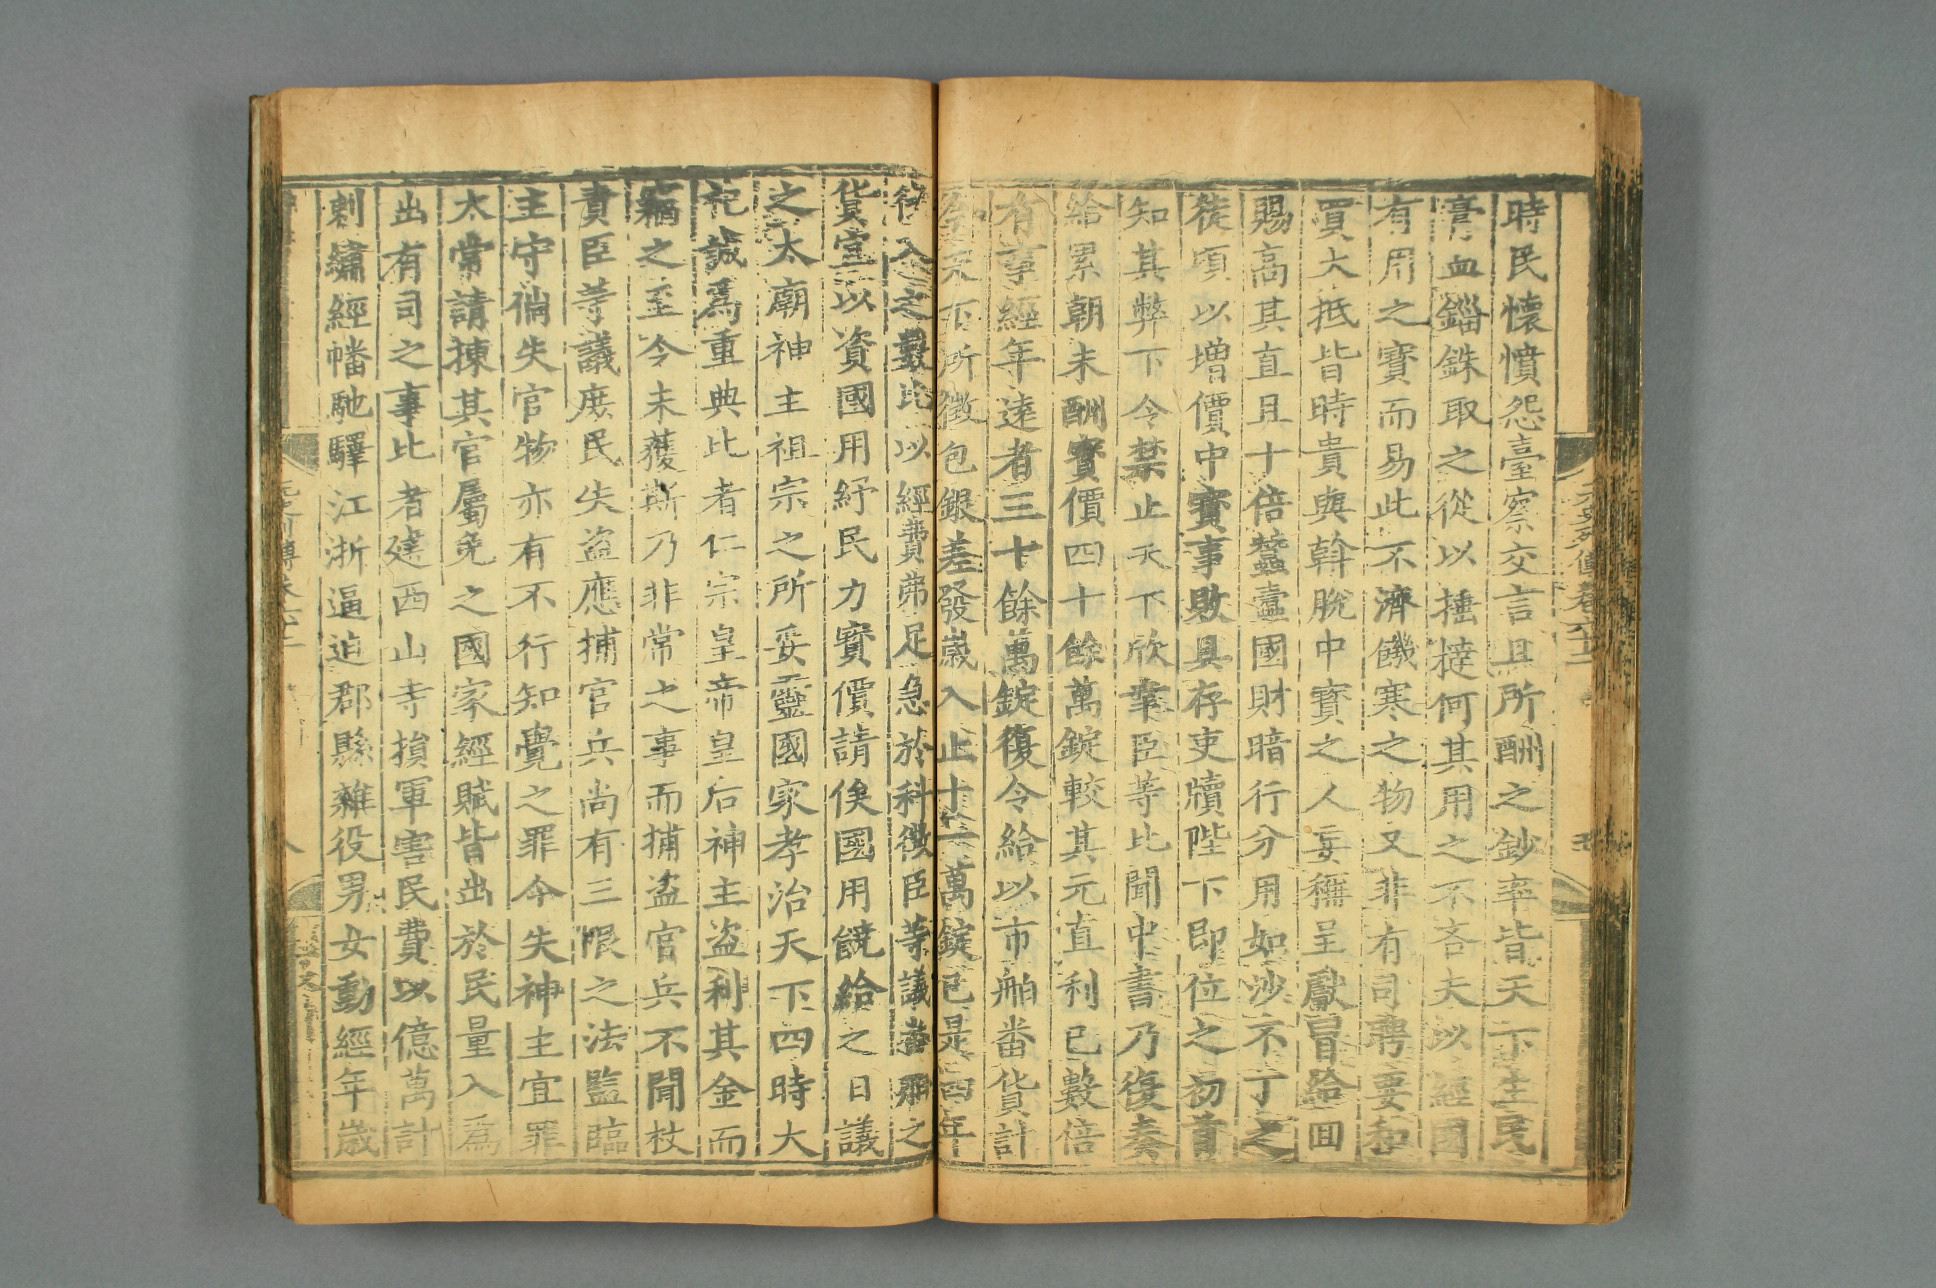 時民懷憤怨臺察交言且所酬之鈔率皆天下生民
膏血錙銖取之從以捶撻何其用之不吝夫以經國
有用之寶而易此不濟饑寒之物又非有司聘要和
買大抵皆時貴與斡脫中寶之人妄稱呈獻冒給回
賜高其直且十倍蠶蠹國財暗行分用如沙不丁之
徒頃以增價中寶事敗具存吏牘陛下即位之初首
知其弊下令禁止天下欣幸臣等比聞中書乃復奏
給累朝未酬寶價四十餘萬錠較其元直利已數倍
有事經年遠者三十餘萬錠復令給以市舶番貨計
今天下所徵包銀差發歲入止十一萬錠已是四年
徵入之數比以經費弗足急於科徵臣等議番舶之
貨宜以資國用紓民力寶價請俟國用饒給之日議
之太廟神主祖宗之所妥靈國家孝治天下四時大
祀誠爲重典比者仁宗皇帝皇后神主盜利其金而
竊之至今未獲斯乃非常之事而捕盜官兵不聞杖
責臣等議庶民失盜應捕官兵尚有三限之法監臨
主守倘失官物亦有不行知覺之罪今失神主宜罪
太常請揀其官屬免之國家經賦皆出於民量入爲
出有司之事比者建西山寺損軍害民費以億萬計
刺繡經幡馳驛江浙逼迫郡縣雜役男女動經年歲